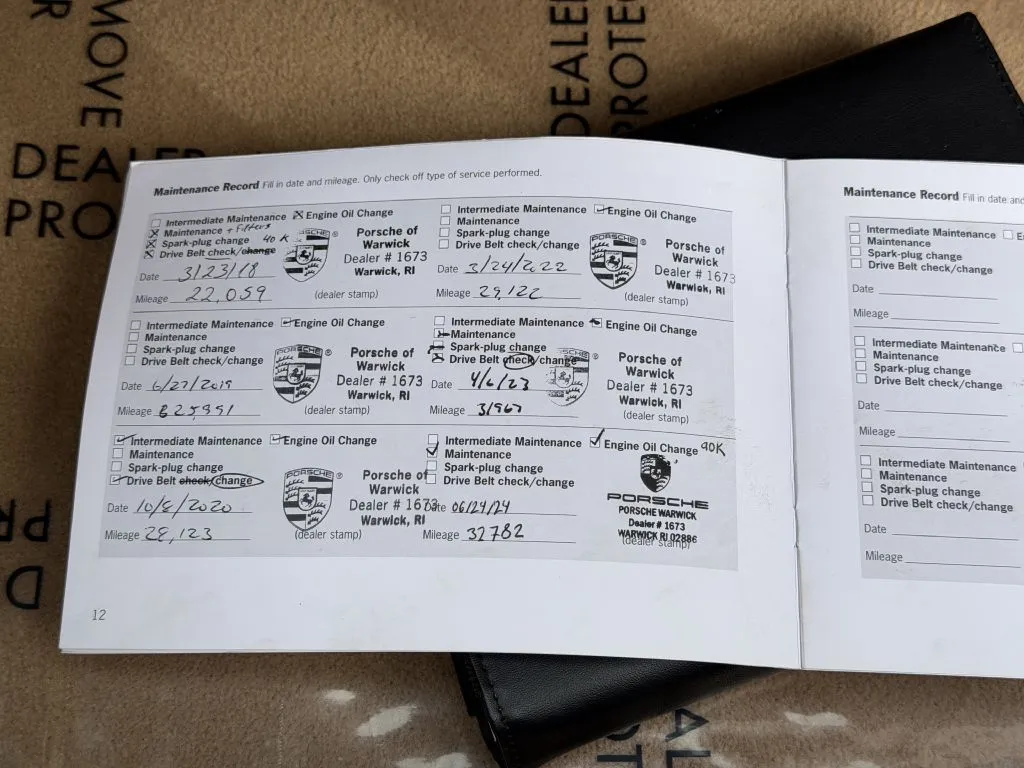 MOVE
DEALER
PROTEC
DEALER
PRO
Maintenance Record Fill in date and mileage. Only check off type of service performed.
Intermediate Maintenance Engine Oil Change
Maintenance + Filters
Spark-plug change 40 K
Drive Belt check/change
Date 3/23/18
Mileage 22,059
PORSCHE ®
Porsche of
Warwick
Dealer # 1673
Warwick, RI
(dealer stamp)
Intermediate Maintenance Engine Oil Change
Maintenance
Spark-plug change
Drive Belt check/change
Date 3/24/2022
Mileage 29,122
PORSCHE ®
Porsche of
Warwick
Dealer # 1673
Warwick, RI
(dealer stamp)
Intermediate Maintenance Engine Oil Change
Maintenance
Spark-plug change
Drive Belt check/change
Date 6/27/2019
Mileage 25,991
PORSCHE ®
Porsche of
Warwick
Dealer # 1673
Warwick, RI
(dealer stamp)
Intermediate Maintenance Engine Oil Change
Maintenance
Spark-plug change
Drive Belt check/change
Date 4/6/23
Mileage 31967
®
Porsche of
Warwick
Dealer # 1673
Warwick, RI
(dealer stamp)
Intermediate Maintenance Engine Oil Change
Maintenance
Spark-plug change
Drive Belt check/change
Date 10/8/2020
Mileage 28,123
PORSCHE ®
Porsche of
Warwick
Dealer # 1673
Warwick, RI
(dealer stamp)
Intermediate Maintenance Engine Oil Change 90K
Maintenance
Spark-plug change
Drive Belt check/change
Date 06/24/24
Mileage 32782
PORSCHE
PORSCHE WARWICK
Dealer # 1673
WARWICK RI 02886
(dealer stamp)
12
Maintenance Record Fill in date and
Intermediate Maintenance
Maintenance
Spark-plug change
Drive Belt check/change
Date
Mileage
Intermediate Maintenance
Maintenance
Spark-plug change
Drive Belt check/change
Date
Mileage
Intermediate Maintenance
Maintenance
Spark-plug change
Drive Belt check/change
Date
Mileage